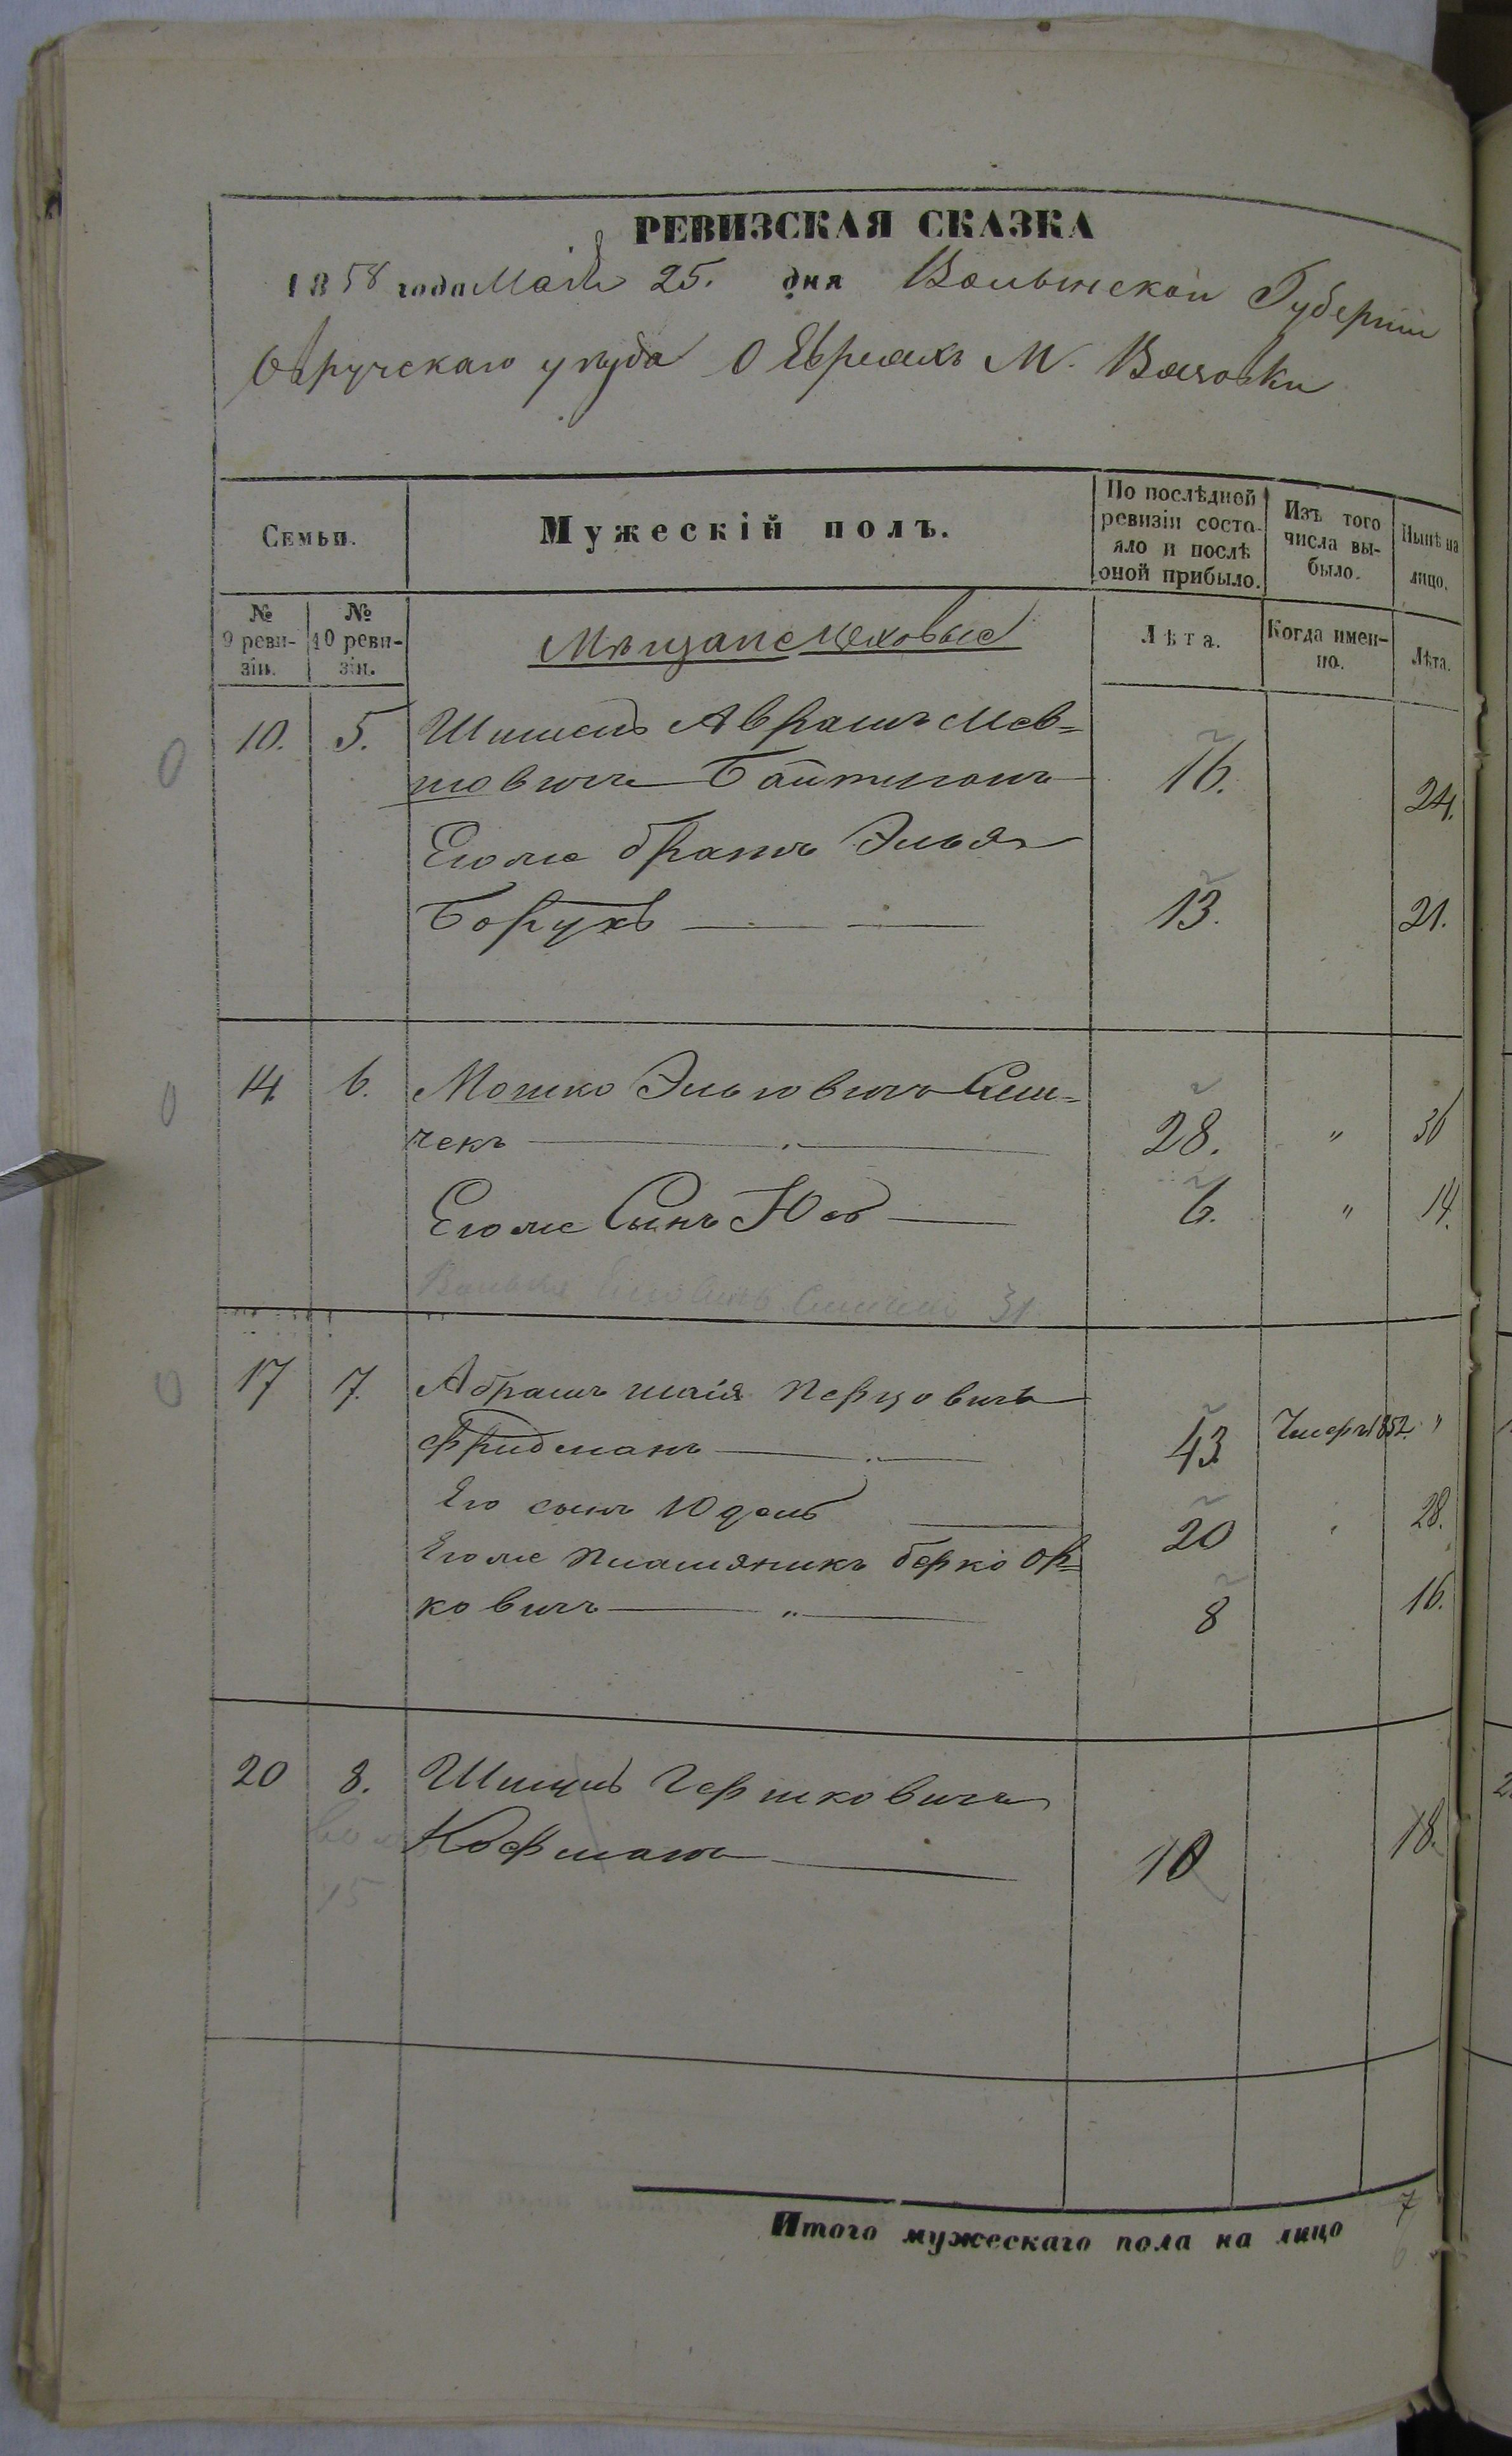 РЕВИЗСКАЯ СКАЗКА
1858 года Мая 25. дня Волынской Губерніи
Овручскаго уѣзда О Евреяхъ М.
Семьи.
Мужескій полъ.
По послѣдней ревизіи состояло и послѣ оной прибыло.
Изъ того числа выбыло.
Нынѣ на лицо.
№ 9 ревизіи.
№ 10 ревизіи.
Мѣщане цеховые
Лѣта.
Когда именно.
Лѣта.
10. 5. Авраамъ
Байтманъ 16. 24.
Егоже братъ Элья
Борухъ 13. 21.
14. 6. Мошко Эльовичъ Сли=
чекъ 28. " 36
Егоже Сынъ 6. " 14.
31
17 7. Абрамъ Перцовичъ
Фридманъ 43 Умеръ 1852. "
Его сынъ Юдель 20 28.
Егоже племяникъ Берко Ор=
ковичъ " 8 16.
20 8. Гершковичъ
Кофманъ 10 18.
15
Итого мужескаго пола на лицо 7
6